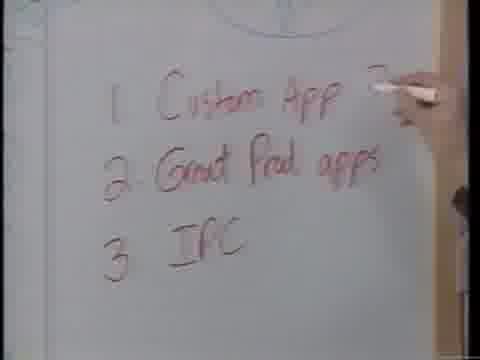 1 Custom App ?
2 Great Prod apps
3 IPC